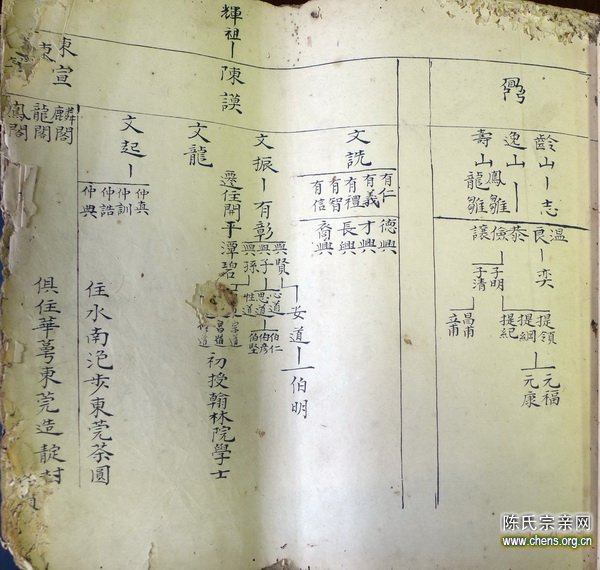 齡山 志
逸山
壽山
鳳雛
龍雛
溫
良 奕
恭
儉
讓
子明
子清
提領
提綱
提紀
昌甫
立甫
元福
元康
輝祖 陳謨
文詵
有仁
有義
有禮
有智
有信
德興
才興
長興
裔興
文振 有彰
興賢
興子
興孫
心道
思道
性道
安道 伯明
伯仁
伯彥
伯堅
文龍
遷住開平潭碧
初授翰林院學士
文起
仲真
仲訓
仲誥
仲典
住水南沱步東莞茶園
東宣
東
麟閣
龍閣
鳳閣
俱住華萼東莞造靛村
陈氏宗亲网
www.chens.org.cn